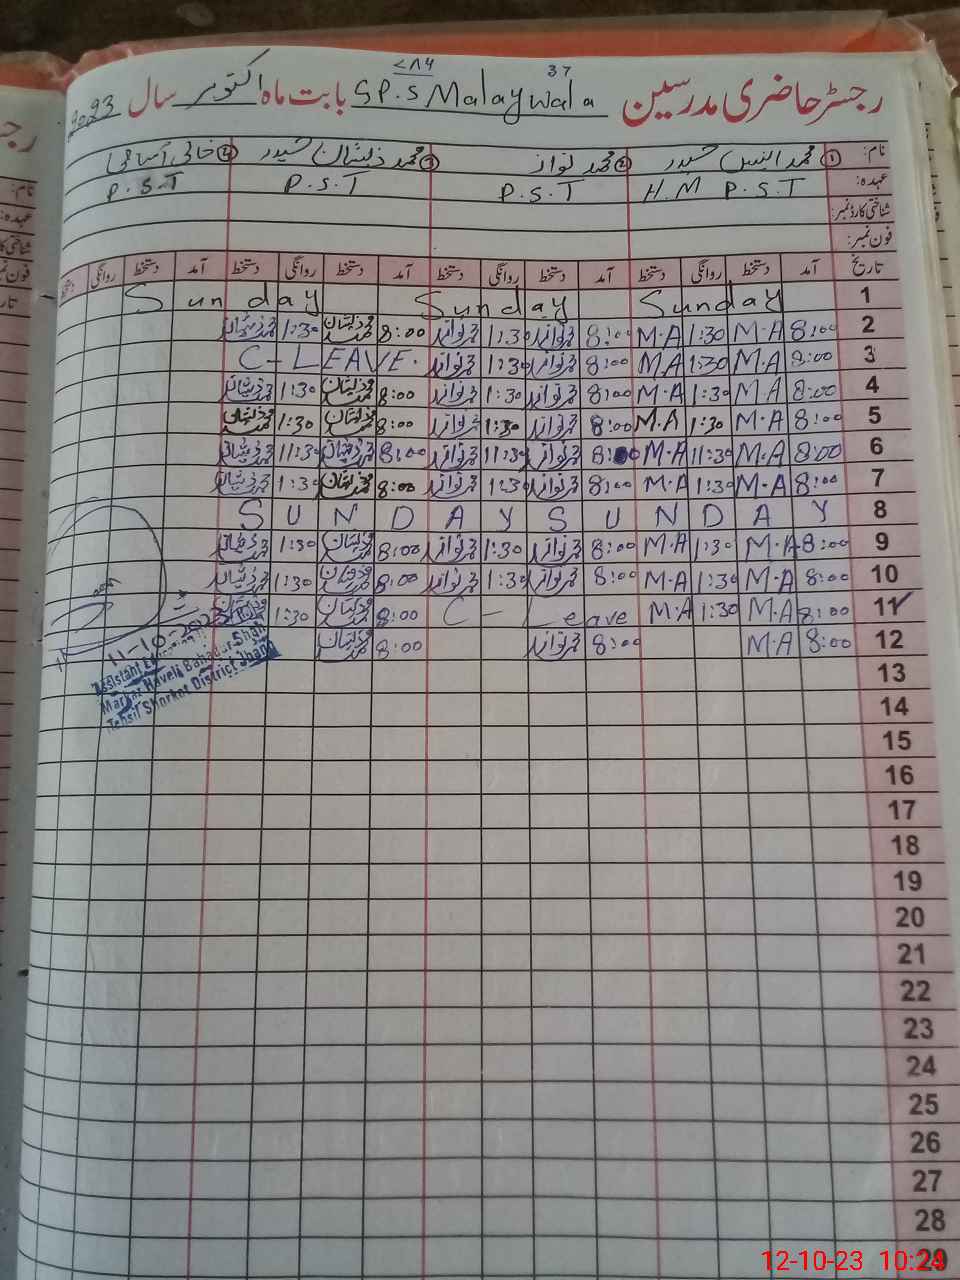 رجسٹر حاضری مدرسین G P.S Malay wala بابت ماہ اکتوبر سال 2023
37
نام: ① محمد انیس حیدر ② محمد نواز ③ محمد ذیشان حیدر ④ خالی آسامی
عہدہ: H.M P.S.T P.S.T P.S.T P.S.T
شناختی کارڈ نمبر:
فون نمبر:
تاریخ آمد دستخط روانگی دستخط آمد دستخط روانگی دستخط آمد دستخط روانگی دستخط آمد دستخط روانگی دستخط
1 Sunday Sunday Sunday
2 8:00 M.A 1:30 M.A 8:00 محمد نواز 1:30 محمد نواز 8:00 محمد ذیشان 1:30 محمد ذیشان
3 8:00 M.A 1:30 M.A 8:00 محمد نواز 1:30 محمد نواز C-LEAVE.
4 8:00 M.A 1:30 M.A 8:00 محمد نواز 1:30 محمد نواز 8:00 محمد ذیشان 1:30 محمد ذیشان
5 8:00 M.A 1:30 M.A 8:00 محمد نواز 1:30 محمد نواز 8:00 محمد ذیشان 1:30 محمد ذیشان
6 8:00 M.A 11:30 M.A 8:00 محمد نواز 11:30 محمد نواز 8:00 محمد ذیشان 11:30 محمد ذیشان
7 8:00 M.A 1:30 M.A 8:00 محمد نواز 1:30 محمد نواز 8:00 محمد ذیشان 1:30 محمد ذیشان
8 SUNDAY SUNDAY
9 8:00 M.A 1:30 M.A 8:00 محمد نواز 1:30 محمد نواز 8:00 محمد ذیشان 1:30 محمد ذیشان
10 8:00 M.A 1:30 M.A 8:00 محمد نواز 1:30 محمد نواز 8:00 محمد ذیشان 1:30 محمد ذیشان
11 8:00 M.A 1:30 M.A C-Leave 8:00 محمد ذیشان 1:30 محمد ذیشان
12 8:00 M.A 8:00 محمد نواز 8:00 محمد ذیشان
11-10-2023
Assistant
Markaz Haveli Bahadur Shah
Tehsil Shorkot District Jhang
13
14
15
16
17
18
19
20
21
22
23
24
25
26
27
28
29
12-10-23 10:24